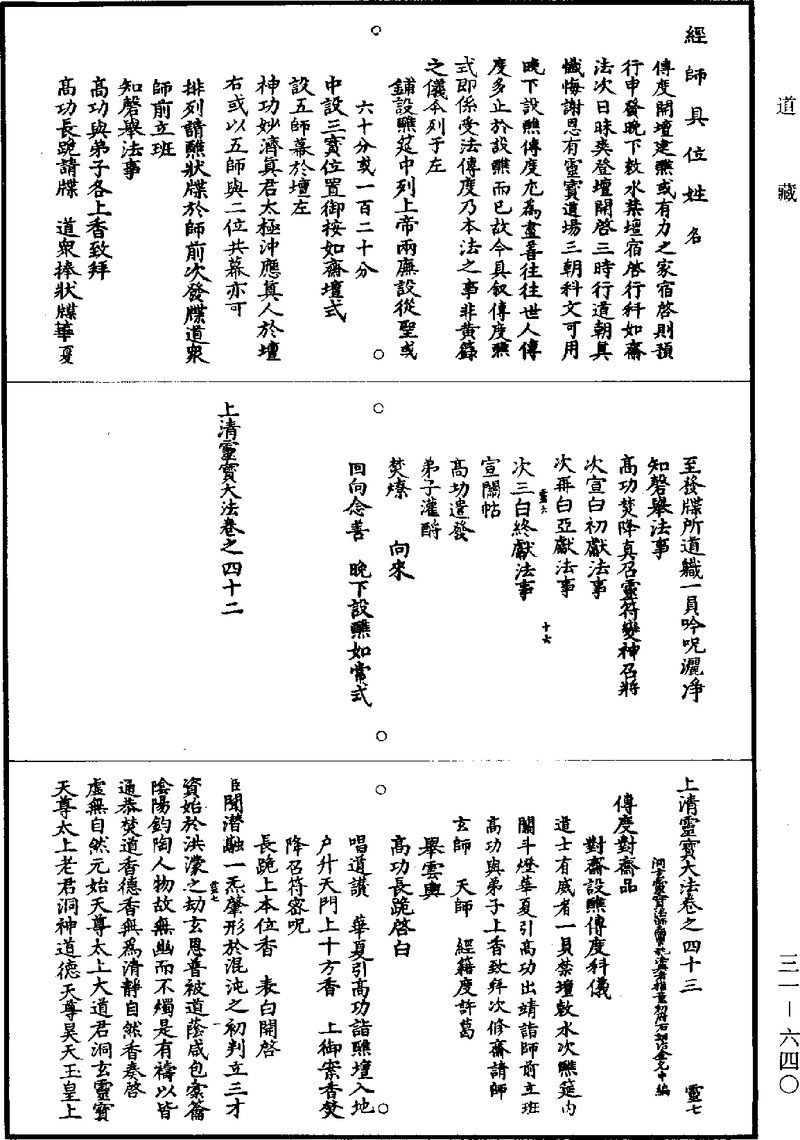 道藏
三一—六四〇
經師具位姓名
傳度開壇建醮或有力之家宿啓則預
行申發晚下敷水禁壇宿啓行科如齋
法次日昧爽登壇開啓三時行道朝真
懺悔謝恩有靈寶道場三朝科文可用
晚下設醮傳度尤為盡善往往世人傳
度多止於設醮而已故今具叙傳度醮
式即係受法傳度乃本法之事非黃籙
之儀今列于左
鋪設醮筵中列上帝兩廡設從聖或
六十分或一百二十分
中設三寶位置御按如齋壇式
設五師幕於壇左
神功妙濟真君太極沖應真人於壇
右或以五師與二位共幕亦可
排列請醮狀牒於師前次發牒道衆
師前立班
知磬舉法事
高功與弟子各上香致拜
高功長跪請牒　道衆捧狀牒華夏
至發牒所道職一員吟呪灑淨
知磬舉法事
高功焚降真召靈符變神召將
次宣白初獻法事
次再白亞獻法事
次三白終獻法事
靈六　十六
宣關帖
高功遣發
弟子灌酹
焚燎　向來
回向念善　晚下設醮如常式
上清靈寶大法卷之四十二
上清靈寶大法卷之四十三　靈七
傳度對齋品
對齋設醮傳度科儀
道士有威者一員禁壇敷水次醮筵內
關斗燈華夏引高功出靖詣師前立班
高功與弟子上香致拜次修齋請師
玄師　天師　經籍度許葛
舉雲輿
高功長跪啓白
唱道讚　華夏引高功詣醮壇入地
户升天門上十方香　上御案香焚
降召符密呪
長跪上本位香　表白開啓
臣聞潛融一炁肇形於混沌之初判立三才
資始於洪濛之劫玄恩普被道蔭咸包橐籥
靈七
陰陽鈞陶人物故無幽而不燭是有禱以皆
通恭焚道香德香無為清靜自然香奏啓
虛無自然元始天尊太上大道君洞玄靈寶
天尊太上老君洞神道德天尊昊天玉皇上